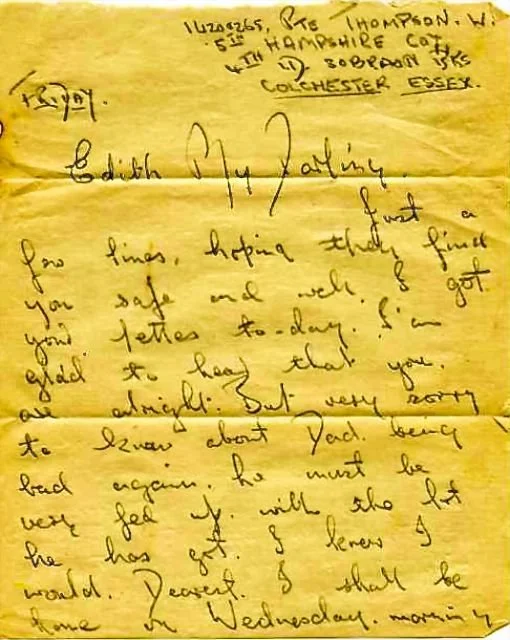 14208265, Pte THOMPSON. W.
5TH HAMPSHIRE COY
4TH SOBRAON BKS
COLCHESTER ESSEX.
FRIDAY.
Edith My Darling,
Just a
few lines, hoping they find
you safe and well. I got
your letter to-day. I'm
glad to hear that you.
are alright. But very sorry
to know about Dad. being
bad again. he must be
very fed up. with the lot
he has got. I know I
would. Dearest. I shall be
home on Wednesday. morning